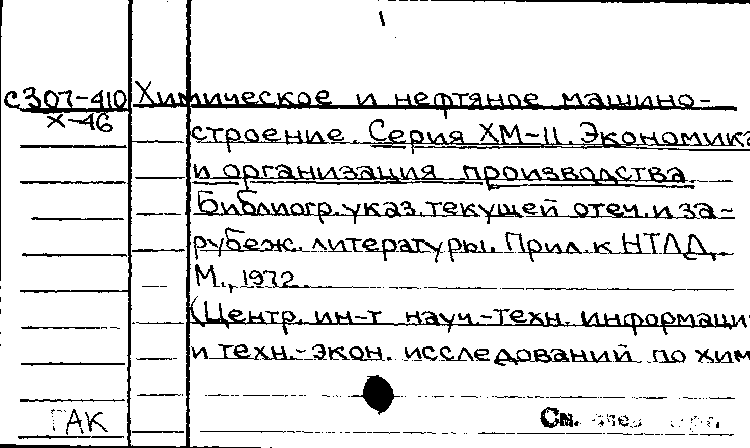 с307-410 Химическое и нефтяное машино-
Х-46
строение. Серия ХМ-11. Экономика
и организация производства.
Библиогр. указ. текущей отеч. и за-
рубеж. литературы. Прил. к НТЛД.
М., 1972.
(Центр. ин-т науч.-техн. информации
и техн.-экон. исследований по хим
ГАК
См.